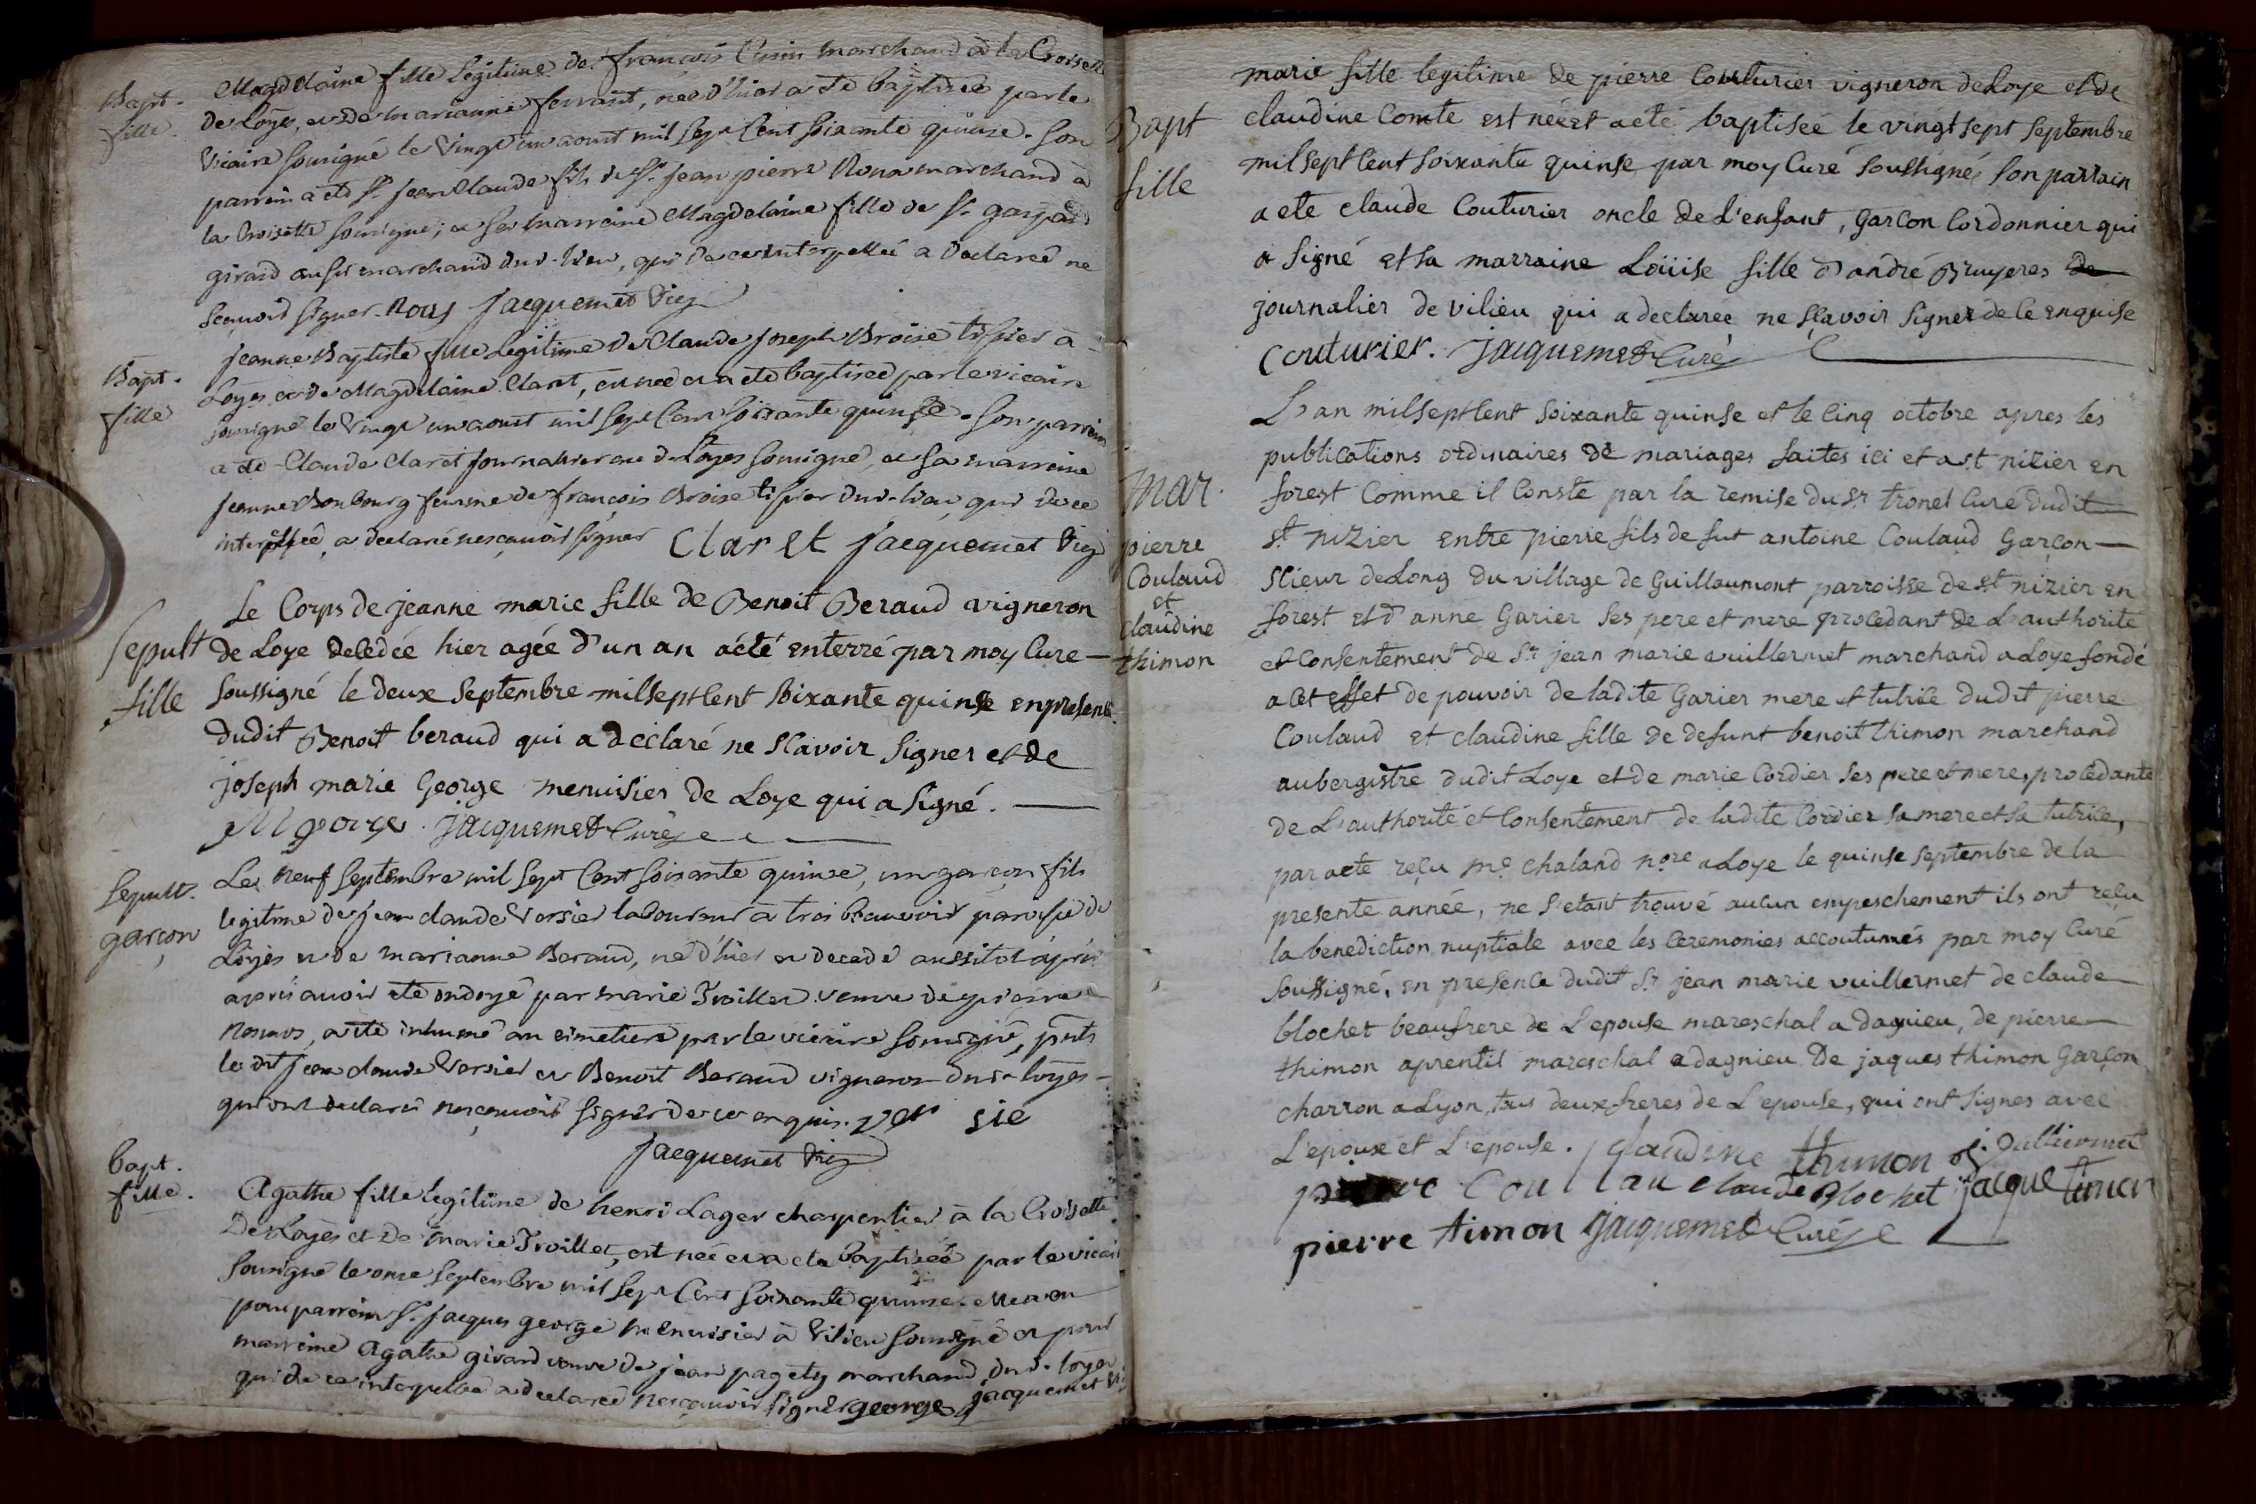 Bapt.
fille
Magdelaine fille legitime de françois Cusin marchand à la Croisette
de Loyes, et de marianne ferrant, née d'hier a eté baptisée par le
vicaire sousigné le vingt un aoust mil sept Cent soixante quinze. Son
parrein a eté Sr jean Claude fils de Sr jean pierre marchand à
la Croisette sousigné; et sa marreine Magdelaine fille de Sr gaspard
girard aussi marchand dud. lieu, qui de ce interpellée a declaré ne
sçavoir signer. Jacquemet vic
Bapt.
fille
jeanne Baptiste fille legitime de Claude joseph Broise tissier à
Loyes et de Magdelaine Claret, est née et a eté baptisée par le vicaire
sousigné le vingt un aoust mil sept Cent soixante quinze. son parrein
a eté Claude Claret journalier au de Loyes sousigné, et sa marreine
jeanne Bonbourg femme de françois Broise tissier dud. lieu, qui de ce
a declaré ne sçavoir signer Claret jacquemet vic
Sepult
fille
Le Corps de jeanne marie fille de Benoit Beraud vigneron
de Loye decedée hier agée d'un an a été enterré par moy Cure
soussigné le deux septembre mil sept Cent soixante quinse en presence
dudit Benoit beraud qui a declaré ne sçavoir signer et de
joseph marie George menuisier de Loye qui a signé.
george. jacquemet Curé
Sepult.
garçon
Le neuf septembre mil sept Cent soixante quinze, un garçon fils
legitime de jean claude Versier laboureur à paroisse de
Loyes et de marianne Beraud, né d'hier et decedé aussitot après
avoir eté ondoyé par marie Troillet veuve de pierre
a eté inhumé au cimetiere par le vicaire sousigné, pnts
le dit jean claude Versier et Benoit Beraud vigneron dud. loyes
qui ont declaré ne sçavoir signer de ce enquis. ver sie
jacquemet vic
bapt.
fille.
Agathe fille legitime de henri Lager charpentier à la Croisette
De Loyes et de marie Troillet, est née et a eté baptisée par le vicaire
sousigné le onze septembre mil sept Cent soixante quinze. elle a eu
pour parrein Sr jacques george menuisier à vilieu sousigné et pour
marreine Agathe girard veuve de jean marchand dud. loyes
qui de ce interpellée a declaré ne sçavoir signer george jacquemet vic
Bapt
fille
marie fille legitime de pierre Couturier vigneron de Loye et de
claudine Comte est née et a eté baptisée le vingt sept septembre
mil sept Cent soixante quinse par moy Curé soussigné, son parrain
a ete claude Couturier oncle de l'enfant, Garçon Cordonnier qui
a signé et sa marraine Loüise fille d'andré Bruyeres de
journalier de vilieu qui a declaree ne sçavoir signer de ce enquise
Couturier. jacquemet Curé
Mar.
pierre
Coulaud
et
claudine
thimon
L'an mil sept Cent soixante quinse et le Cinq octobre apres les
publications ordinaires de mariages faites ici et a st nizier en
forest Comme il Conste par la remise du Sr tronel Curé dudit
st nizier entre pierre fils de fut antoine Coulaud Garçon
scieur de Long du village de Guillaumont parroisse de st nizier en
forest et d'anne Garier ses pere et mere procedant de L'authorite
et Consentement de Sr jean marie vuillermet marchand a Loye fondé
a Cet effet de pouvoir de ladite Garier mere et tutrice dudit pierre
Coulaud et claudine fille de defunt benoit thimon marchand
aubergistre dudit Loye et de marie Cordier ses pere et mere, procedante
de L'authorité et Consentement de ladite Cordier sa mere et sa tutrice,
par acte reçu me chaland nore a Loye le quinse septembre de la
presente année, ne s'etant trouvé aucun empeschement ils ont reçu
la benediction nuptiale avec les Ceremonies accoutumés par moy Curé
soussigné, en presence dudit Sr jean marie vuillermet de claude
blochet beaufrere de L'epouse mareschal a dagnieu, de pierre
thimon aprentif mareschal a dagnieu De jaques thimon Garçon
charron a Lyon, tous deux freres de L'epouse, qui ont signes avec
L'epoux et L'epouse. glaudine thimon j. vuillermet
pierre Coullau claude Blochet jacque timon
pierre timon jacquemet Curé